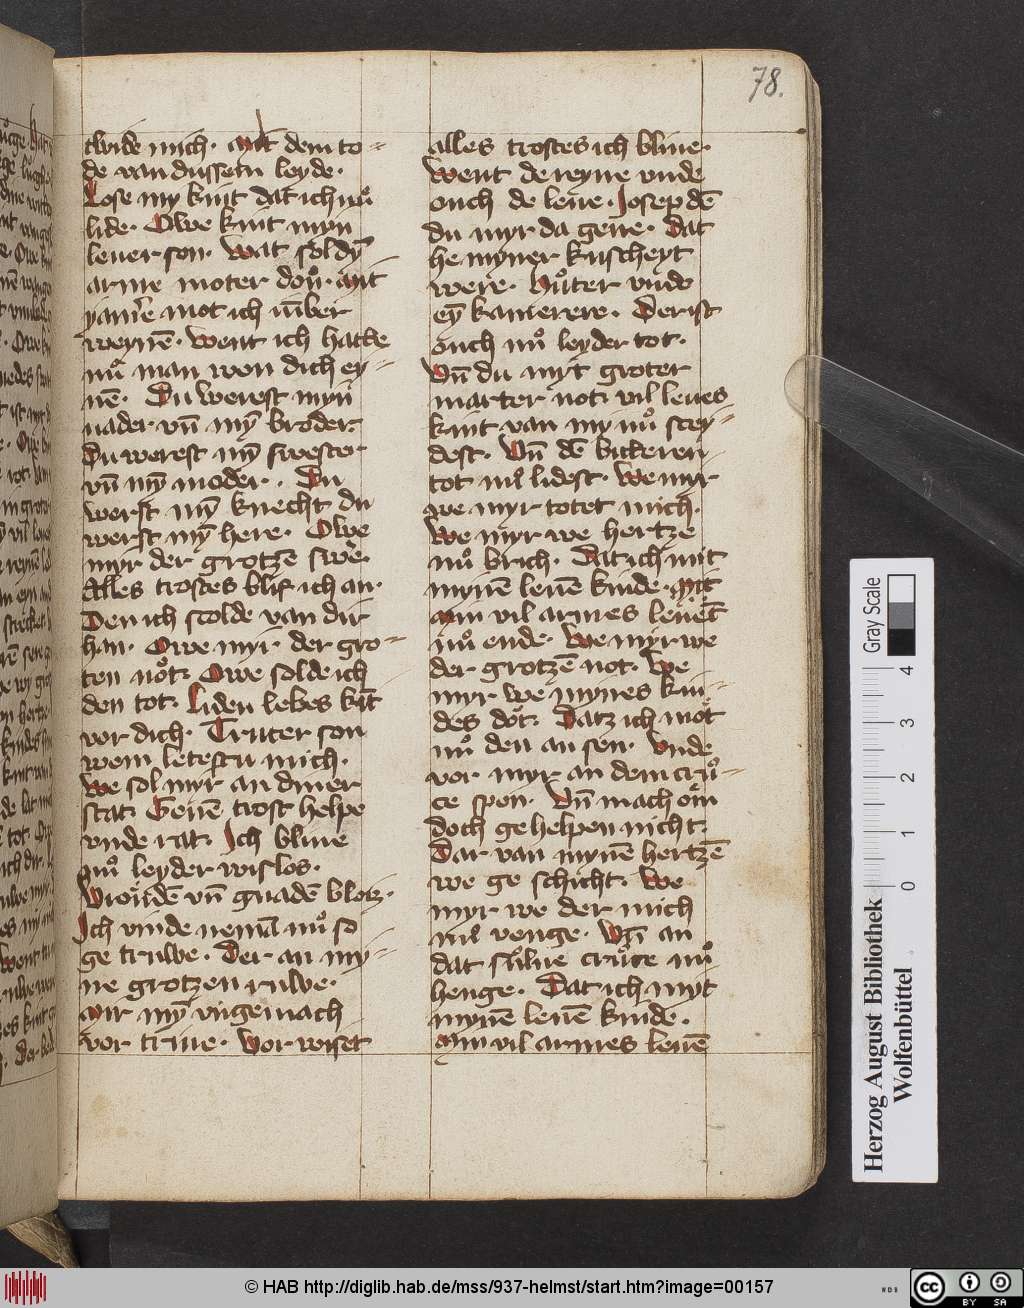 78.
twide mich. Mit dem to-
de van dussem leyde.
Lose my kint dat ich nů
lide. Owe kint myn
lever son. Wat sol dyn̄
arme moter don̊. Mit
yam̄e mot ich um̄ber
weynē. Went ich hatte
nů man wen dich ey-
nē. Du werest myn
vader vn̄ my̅ broder.
Du werest my̅ swester
vn̄ my̅ moder. Du
werst my̅ knecht du
werst my̅ here. Owe
myr der grotzē swe̅.
Alles trostes blif ich an.
Den ich scolde van dir
han. Owe myr der gro-
ten nöt. Owe solde ich
den tot. Liden lebes kīt
vor dich. Truter son
wem letestu mich.
We sol myr an diner
stat. Gevē trost helpe
vnde rat. Ich blive
nů leyder wislos.
Vroudē vn̄ gnadē bloz.
Ich vinde nemā nů so
ge truwe. Der an my-
ne grotzen ruwe.
Mir my̅ vngemach
vor triue. Vor wiset
alles trostes ich blive.
Went de reyne vnde
ouch de leve. Josep dē
du myr da geve. Dat
he myner kuscheyt
were. Hůter vnde
ey̅ kamerere. Der ist
ouch nů leyder tot.
Vn̄ du myt groter
marter not. vil leves
kint van my nů scey-
dest. Vn̄ dē bitteren
tot nů lidest. We myr
we myr totet mich.
We myr we hertze
nů brich. Dat ich mit
mynē levē kinde. Mit
Min vil armes levēt
nů ende. We myr we
der grotzē not. We
myr we mynes kin-
des döt. Datz ich möt
nů den an sen. Vnde
vor myr an dem crů-
ce spon. Vn̄ mach öm
doch ge helpen nicht.
Dar van mynē hertzē
we ge schicht. We
myr we der mich
nů venge. Vn̄ an
dat sulve crůce nů
henge. Dat ich myt
mynē levē kinde.
Min vil armes levē
Herzog August Bibliothek
Wolfenbüttel
0 1 2 3 4
Gray Scale
© HAB http://diglib.hab.de/mss/937-helmst/start.htm?image=00157
WDB
cc BY SA